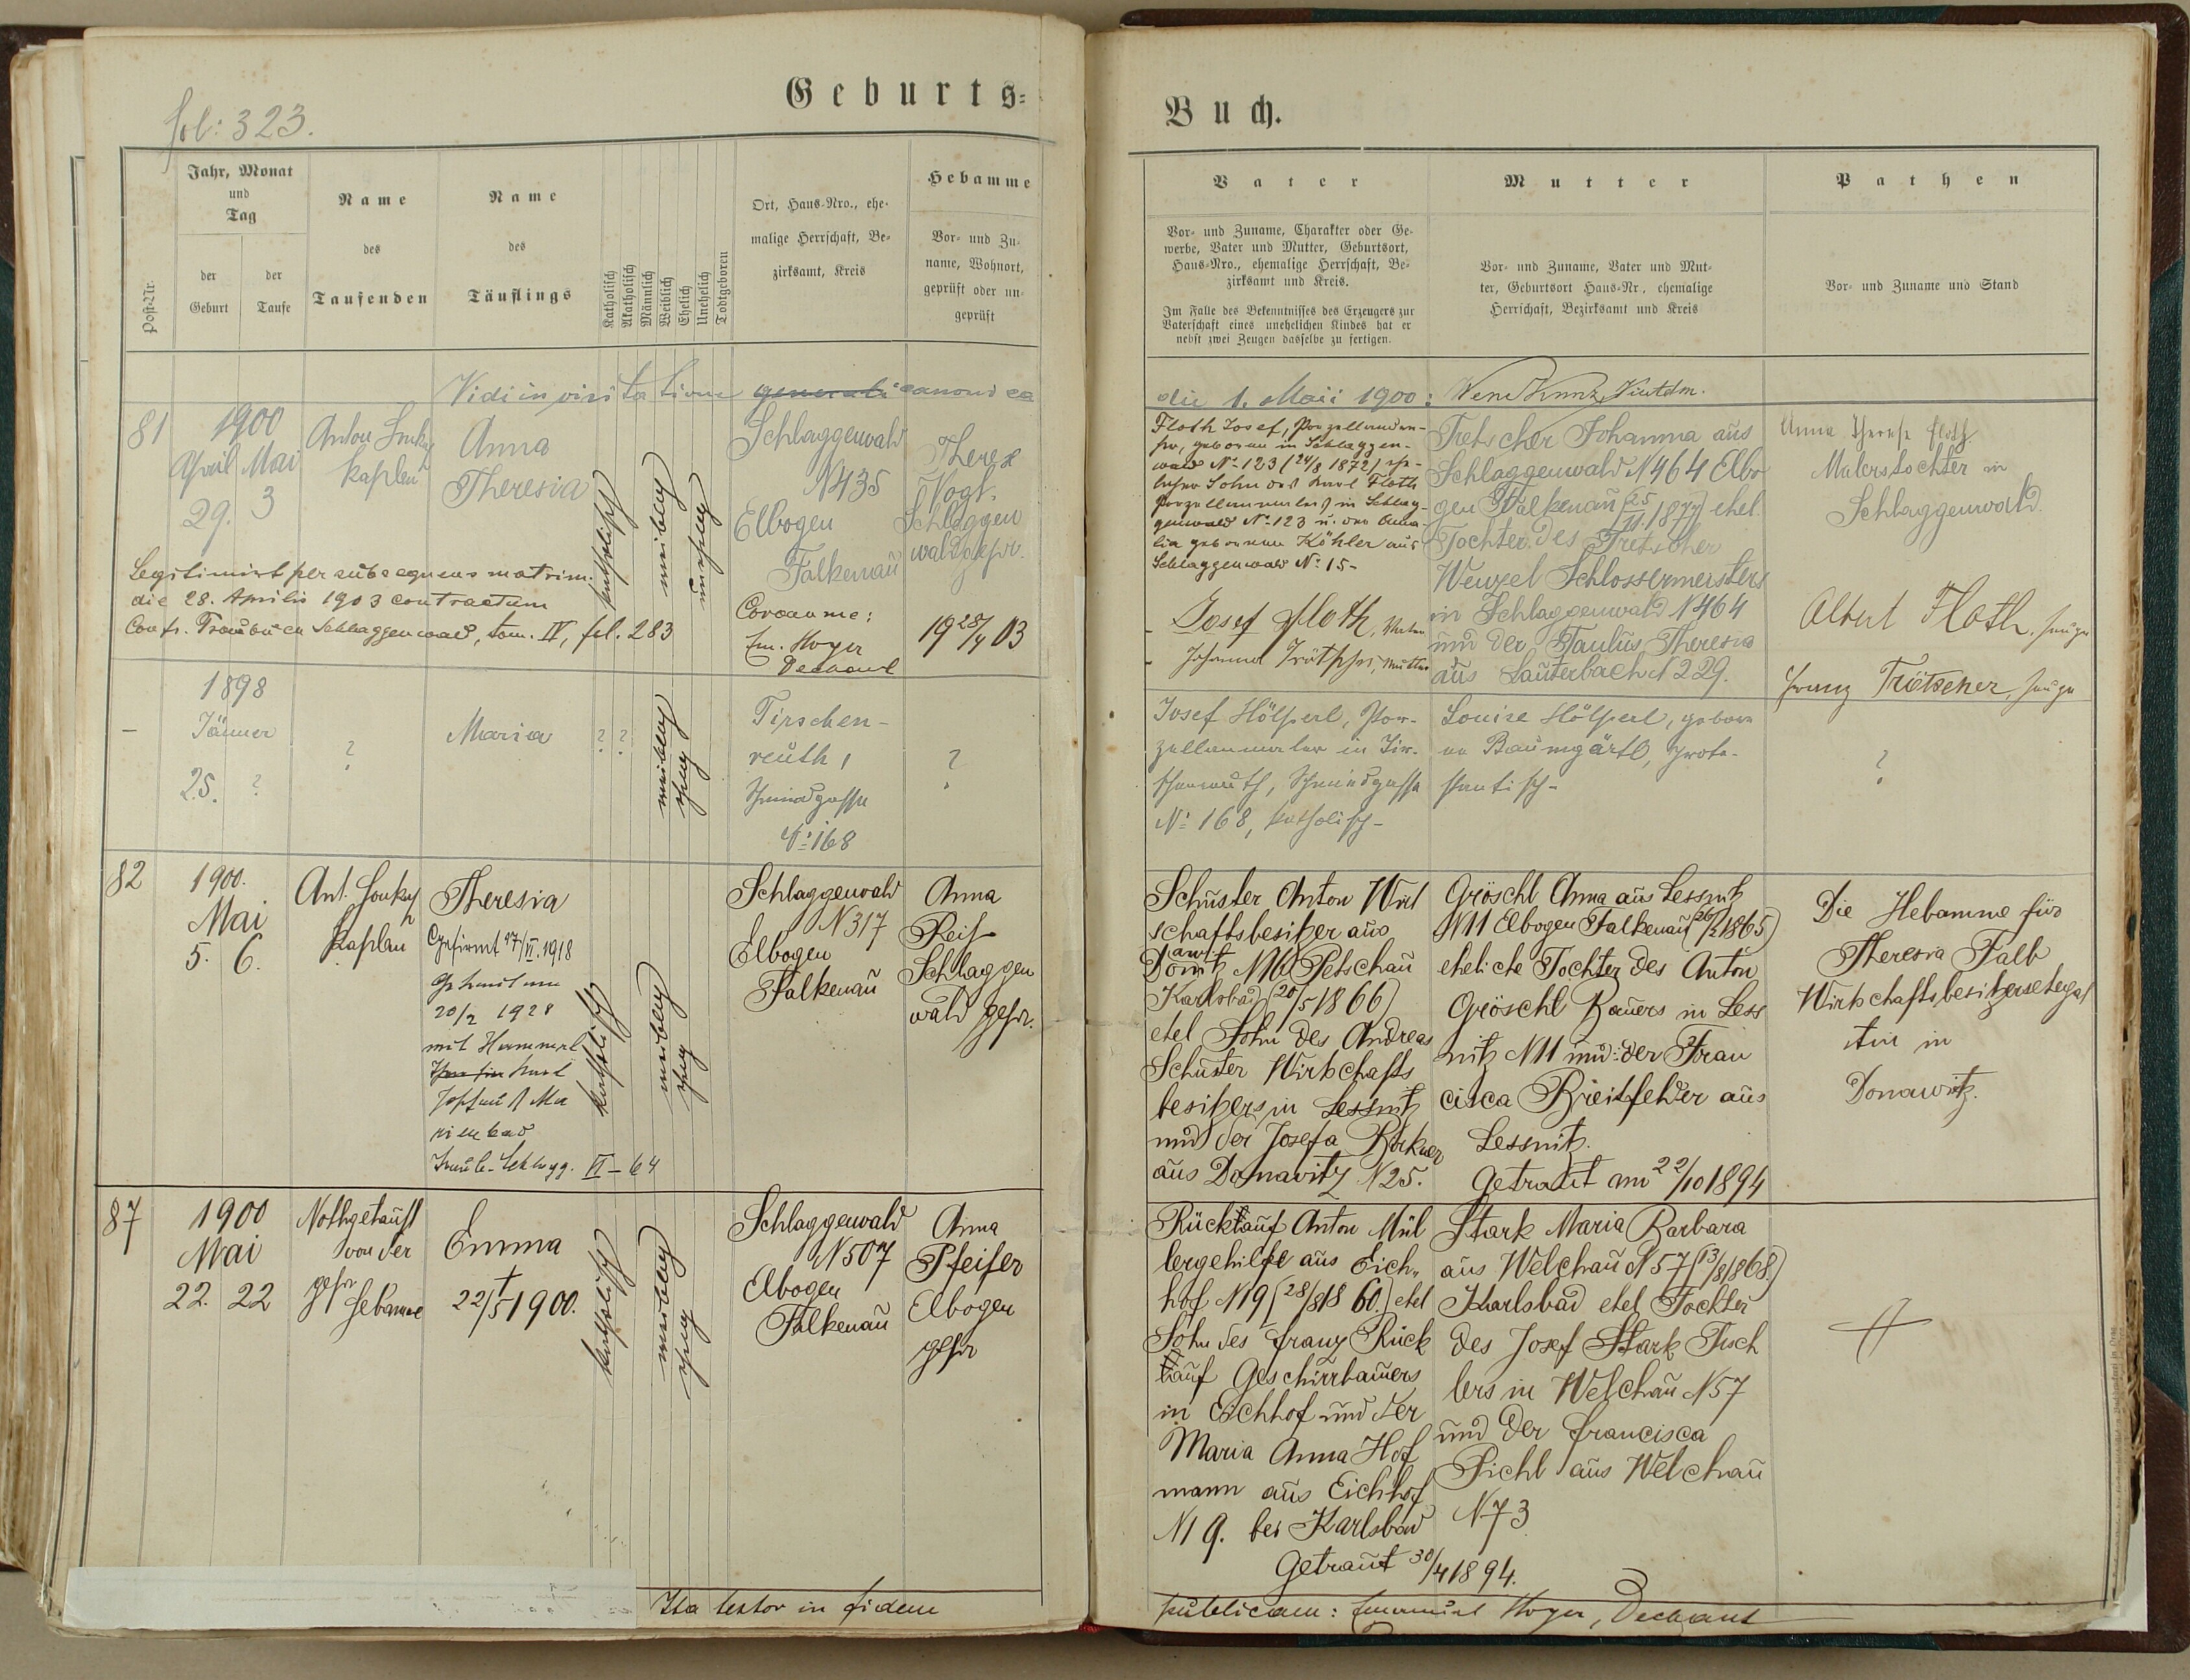 fol: 323.
Geburts=
Buch.
Post-Nr.
Jahr, Monat
und
Tag
der
Geburt
der
Taufe
Name
des
Taufenden
Name
des
Täuflings
Katholisch
Akatholisch
Männlich
Weiblich
Ehelich
Unehelich
Todtgeboren
Ort, Haus-Nro., ehe-
malige Herrschaft, Be-
zirksamt, Kreis
Hebamme
Vor- und Zu-
name, Wohnort,
geprüft oder un-
geprüft
Vater
Vor- und Zuname, Charakter oder Ge-
werbe, Vater und Mutter, Geburtsort,
Haus-Nro., ehemalige Herrschaft, Be-
zirksamt und Kreis.
Im Falle des Bekenntnisses des Erzeugers zur
Vaterschaft eines unehelichen Kindes hat er
nebst zwei Zeugen dasselbe zu fertigen.
Mutter
Vor- und Zuname, Vater und Mut-
ter, Geburtsort Haus-Nr., ehemalige
Herrschaft, Bezirksamt und Kreis
Pathen
Vor- und Zuname und Stand
Vidi in visitatione generali canonica
die 1. Maii 1900:
81
1900
April Mai
29. 3
Anton
Kaplan
Anna
Theresia
katholisch
weiblich
unehelich
Schlaggenwald
N435
Elbogen
Falkenau
Theres
Vogl,
Schlaggen
wald gepr.
Legitimirt per subsequens matrim.
die 28. Aprilis 1903 contractum
Conf. Traubuch Schlaggenwald, tom. IV, fol. 283
Coram me:
Em. Hoyer
Dechant
19 28/4 03
Floth Josef, Porzellandre-
her, geboren in Schlaggen-
wald No 123 (24/8 1872) ehe-
licher Sohn des Karl Floth
Porzellanmalers in Schlag-
genwald No 123 u. der Ama-
lia geborenen Köhler aus
Schlaggenwald No 15-
Josef Floth, Vater
Johanna Trötscher, Mutter
Tretscher Johanna aus
Schlaggenwald N464 Elbo
gen Falkenau (25/11. 1877) ehel.
Tochter des Tretscher
Wenzel Schlossermeisters
in Schlaggenwald N464
und der Paulus Theresia
aus Lauterbach N229.
Anna Therese Floth
Malerstochter in
Schlaggenwald.
Albert Floth, Zeuge
Franz Trötscher, Zeuge
-
1898
Jänner
25. ?
?
Maria
? ?
weiblich
ehelich
Tirschen-
reuth,
Schmiedgasse
No 168
?
Josef Hölperl, Por-
zellanmaler in Tir-
schenreuth, Schmiedgasse
No 168, katholisch-
Louise Hölperl, gebore
ne Baumgärtl, prote-
stantisch-
?
82
1900.
Mai
5. 6.
Ant.
Kaplan
Theresia
Gefirmt 17/VI. 1918
Geheiratet am
20/2 1928
mit Hammerl
Karl
Josef aus Ma
rienbad
Traub. Schlagg. VI - 64
katholisch
weiblich
ehelich
Schlaggenwald
N317
Elbogen
Falkenau
Anna
Reif
Schlaggen
wald gepr.
Schuster Anton Wirt
schaftsbesitzer aus
Donawitz N16 Petschau
Karlsbad (20/5 1866)
ehel Sohn des Andreas
Schuster Wirtschafts
besitzers in Lessnitz
und der Josefa Birkner
aus Donawitz N25.
Gröschl Anna aus Lessnitz
N11 Elbogen Falkenau (26/2 1865)
eheliche Tochter des Anton
Gröschl Bauers in Less
nitz N11 und der Fran
cisca Breitfelder aus
Lessnitz.
Getraut am 22/10 1894
Die Hebamme für
Theresia Falb
Wirtschaftsbesitzersgat
tin in
Donawitz.
87
1900
Mai
22. 22
Nothgetauft
von der
gepr
Hebamme
Emma
†
22/5 1900.
katholisch
weiblich
ehelich
Schlaggenwald
N507
Elbogen
Falkenau
Anna
Pfeifer
Elbogen
gepr
Rücktauf Anton Mül
lergehilfe aus Eich-
hof N19 (28/8 1860.) ehel
Sohn des Franz Rück
tauf Geschirrbauers
in Eichhof und der
Maria Anna Hof
mann aus Eichhof
N19. bei Karlsbad
Getraut 30/4 1894.
Stark Maria Barbara
aus Welchau N57 (13/8 1868.)
Karlsbad ehel Tochter
des Josef Stark Tisch
lers in Welchau N57
und der Francisca
Pichl aus Welchau
N73
Ita testor in fidem
publicam: Emanuel Hoyer, Dechant